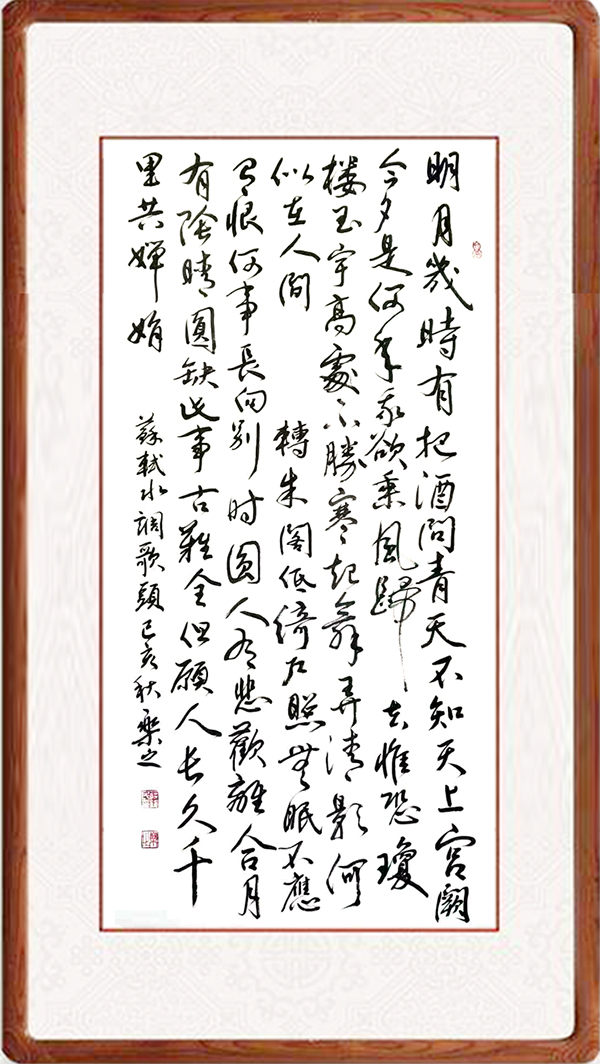 明月幾時有把酒問青天不知天上宫闕
今夕是何年我欲乘風歸去惟恐瓊
楼玉宇高處不勝寒起舞弄清影何
似在人間 轉朱閣低绮户照無眠不應
有恨何事長向别时圓人有悲歡離合月
有陰晴圓缺此事古難全但願人长久千
里共嬋娟 蘇軾水调歌頭己亥秋樂之